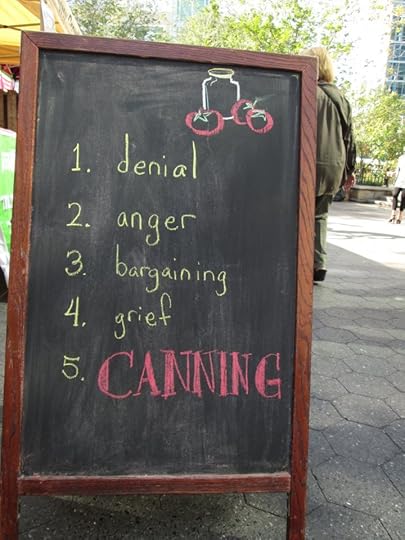 1. denial
2. anger
3. bargaining
4. grief
5. CANNING